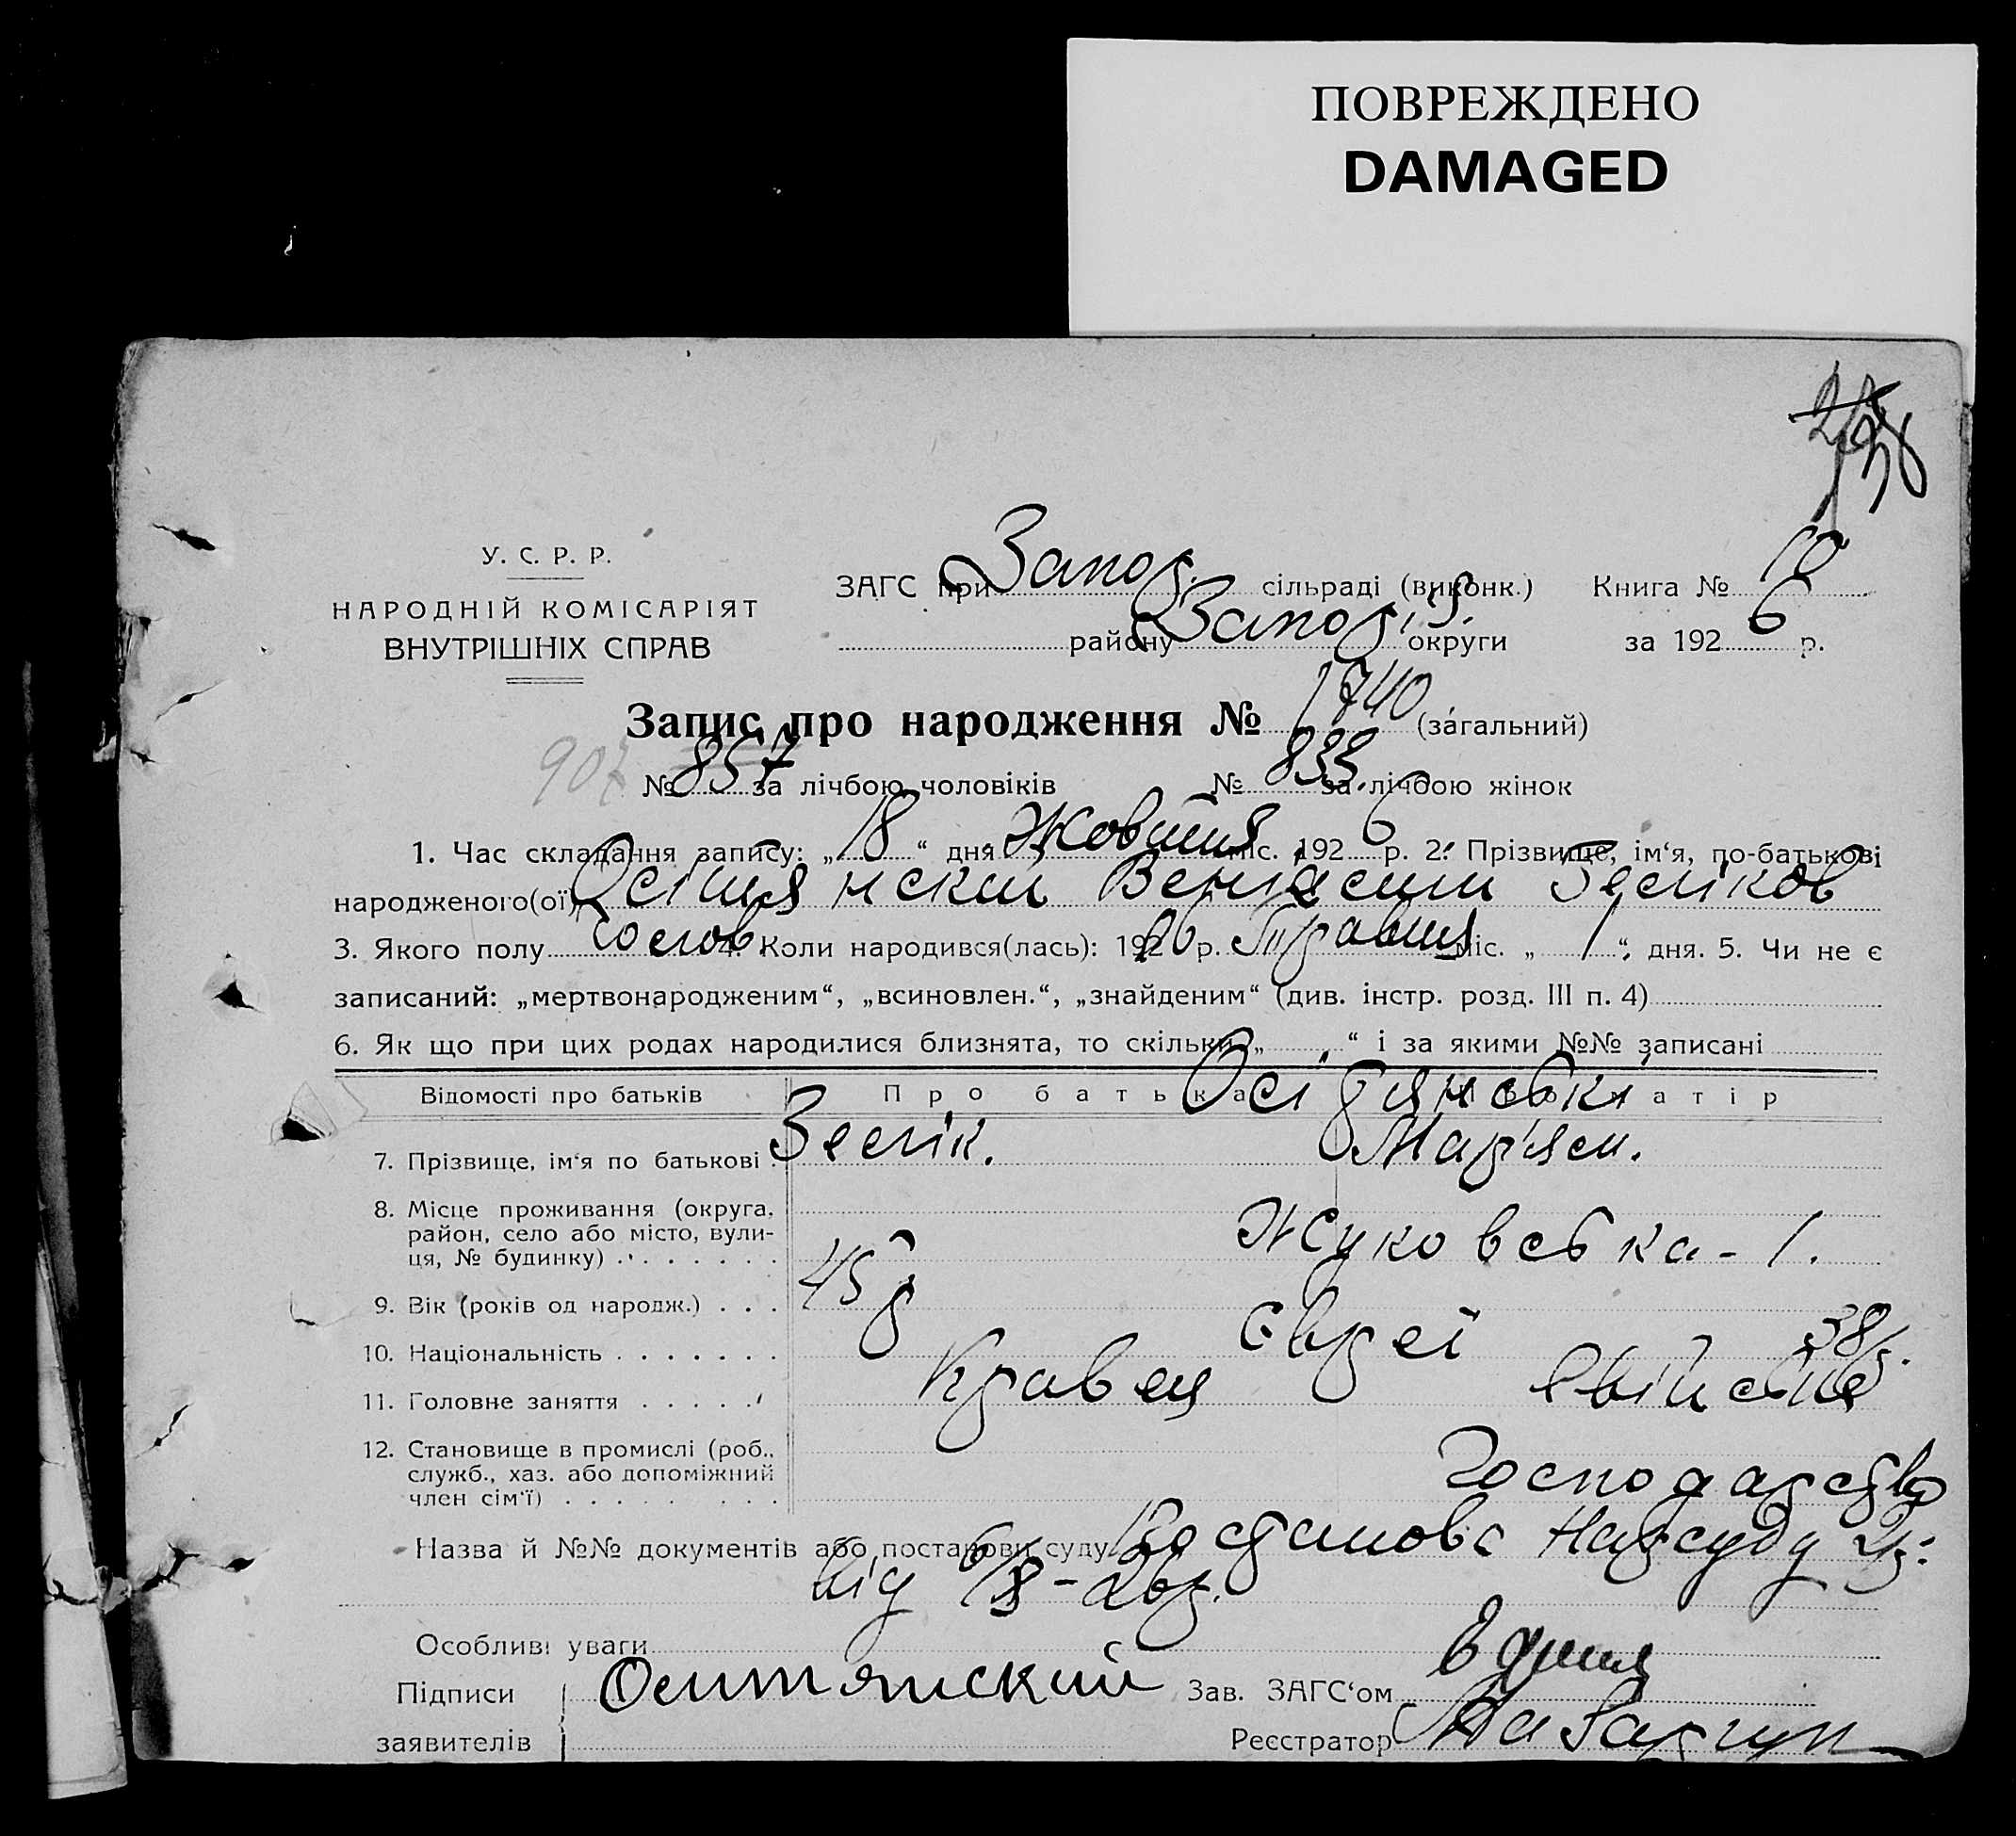 ПОВРЕЖДЕНО
DAMAGED
У. С. Р. Р.
НАРОДНІЙ КОМІСАРІЯТ
ВНУТРІШНІХ СПРАВ
ЗАГС при Запор. сільраді (виконк.) Книга № 10
району Запоріз. округи за 1926 р.
Запис про народження № 1740 (загальний)
907 № 857 за лічбою чоловіків № 833 за лічбою жінок
1. Час складання запису: „18“ дня Жовтня міс. 1926 р. 2. Прізвище, ім‘я, по-батькові
народженого(ої)
3. Якого полу 4. Коли народився(лась): 1926 р. Травня міс. „1“, дня. 5. Чи не є
записаний: „мертвонародженим“, „всиновлен.“, „знайденим“ (див. інстр. розд. III п. 4)
6. Як що при цих родах народилися близнята, то скільки „ “ і за якими №№ записані
Відомості про батьків Про батька Про матір
7. Прізвище, ім‘я по батькові Зелік. Мар'ям.
8. Місце проживання (округа, район, село або місто, вулиця, № будинку) Жуковська - 1.
9. Вік (років од народж.) 45 р 38 р.
10. Національність Євреї
11. Головне заняття Кравец свійське
12. Становище в промислі (роб., служб., хаз. або допоміжний член сім‘ї) Господарство
Назва й №№ документів або постанови суду Постанова Нарсуду
від 26 р.
Особливі уваги
Підписи Остянский Зав. ЗАГС‘ом
заявителів Реєстратор